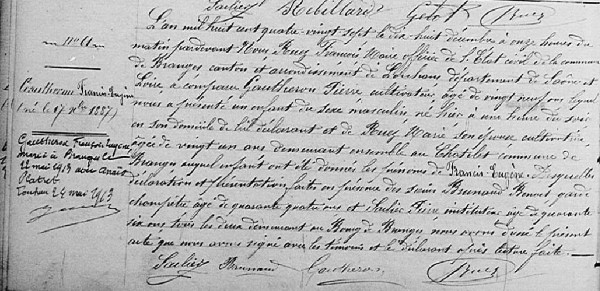 Rebillard
L'an mil huit cent quatre-vingt sept le dix huit décembre à onze heures du
matin pardevant Nous Roux François Marie officier de l'Etat civil de la commune
de Branges canton et arrondissement de Louhans département de Saône et
Loire a comparu Gautheron Pierre cultivateur âgé de vingt neuf ans lequel
nous a présenté un enfant du sexe masculin né hier à une heure du soir
en son domicile de lui déclarant et de Marie son épouse cultivatrice
âgée de vingt un ans demeurant ensemble au Chatelet commune de
Branges auquel enfant ont été donnés les prénoms de Francis-Eugène. Lesquelles
déclaration et présentation faites en présence des sieurs Brunand garde
champêtre âgé de quarante quatre ans et Saulier Pierre instituteur âgé de quarante
six ans tous les deux demeurant au Bourg de Branges nous avons dressé le présent
acte que nous avons signé avec les témoins et le déclarant après lecture faite.
Saulier Brunand Gautheron
Gautheron Francis-Eugène
né le 17 Xbre 1887
Gautheron François Eugène
marié à Branges le
mai 1913 avec
Louhans 24 mai 1913